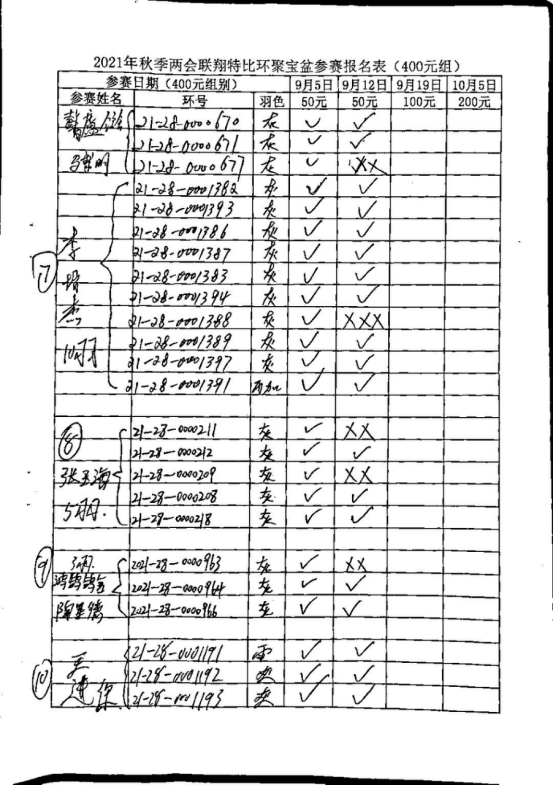 2021年秋季两会联翔特比环聚宝盆参赛报名表（400元组）
参赛日期（400元组别） 9月5日 9月12日 9月19日 10月5日
参赛姓名 环号 羽色 50元 50元 100元 200元
21-28-0000670 灰 ✓ ✓
21-28-0000671 灰 ✓ ✓
21-28-0000677 灰 ✓ XX
21-28-0001382 灰 ✓ ✓
21-28-0001393 灰 ✓ ✓
李 21-28-0001386 灰 ✓ ✓
21-28-0001387 灰 ✓ ✓
⑦ 21-28-0001383 灰 ✓ ✓
21-28-0001394 灰 ✓ ✓
杰 21-28-0001388 灰 ✓ XXX
21-28-0001389 灰 ✓ ✓
10羽 21-28-0001397 灰 ✓ ✓
21-28-0001391 ✓ ✓
⑧ 21-28-0000211 灰 ✓ XX
21-28-0000212 灰 ✓ ✓
张玉海 21-28-0000209 灰 ✓ XX
21-28-0000208 灰 ✓ ✓
5羽. 21-28-0000218 灰 ✓ ✓
⑨ 3羽. 2021-28-0000963 灰 ✓ XX
2021-28-0000964 灰 ✓ ✓
2021-28-0000966 灰 ✓ ✓
王 21-28-0001191 雨 ✓ ✓
⑩ 21-28-0001192 灰 ✓ ✓
建保 21-28-0001193 灰 ✓ ✓